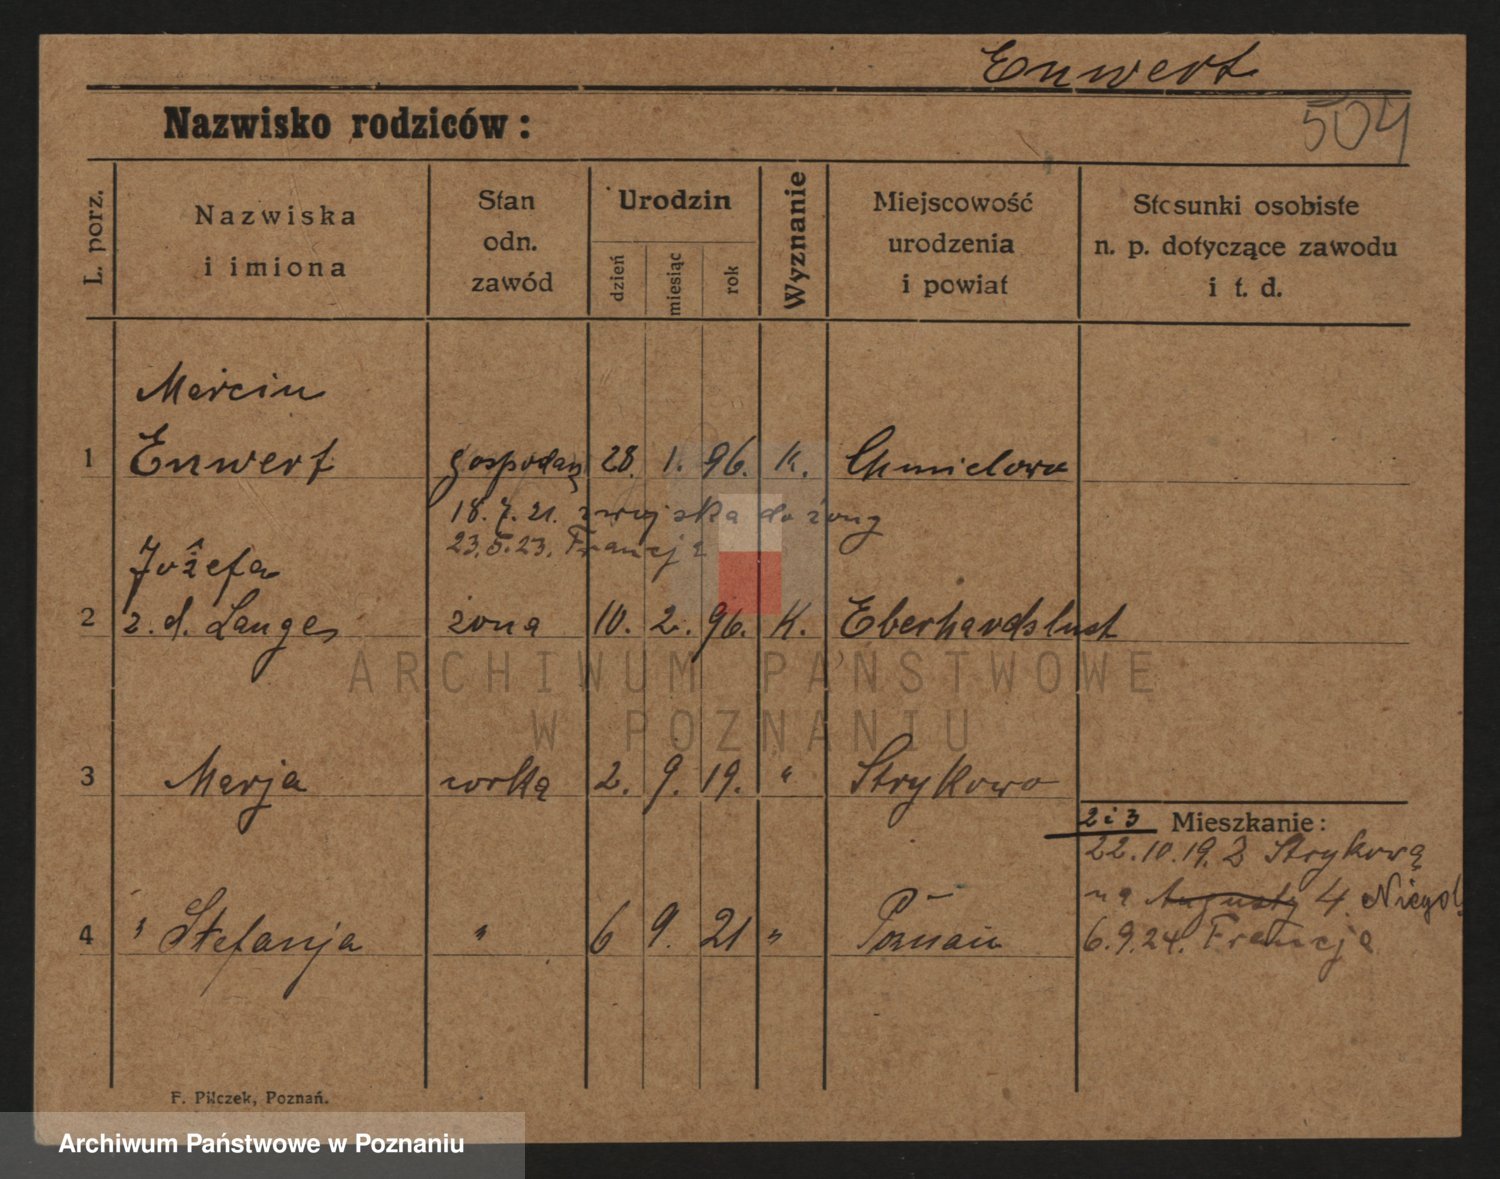 Enwert
504
Nazwisko rodziców:
L. porz.
Nazwiska
i imiona
Stan
odn.
zawód
Urodzin
dzień
miesiąc
rok
Wyznanie
Miejscowość
urodzenia
i powiat
Stosunki osobiste
n. p. dotyczące zawodu
i t. d.
Marcin
1 Enwert gospodarz 28. 1. 96. K. Chmielowo
18.7.21. z wojska do żony
23.5.23. Francja
Józefa
2 z. d. Langes żona 10. 2. 96. K. Eberhardslust
3 Marja córka 2. 9. 19. " Strykowo
2 i 3 Mieszkanie:
22.10.19. Z Strykową
na Augusty 4 Niegol.
4 " Stefanja " 6 9. 21 " Poznań
6.9.24. Francja
F. Pilczek, Poznań.
ARCHIWUM PAŃSTWOWE
W POZNANIU
Archiwum Państwowe w Poznaniu